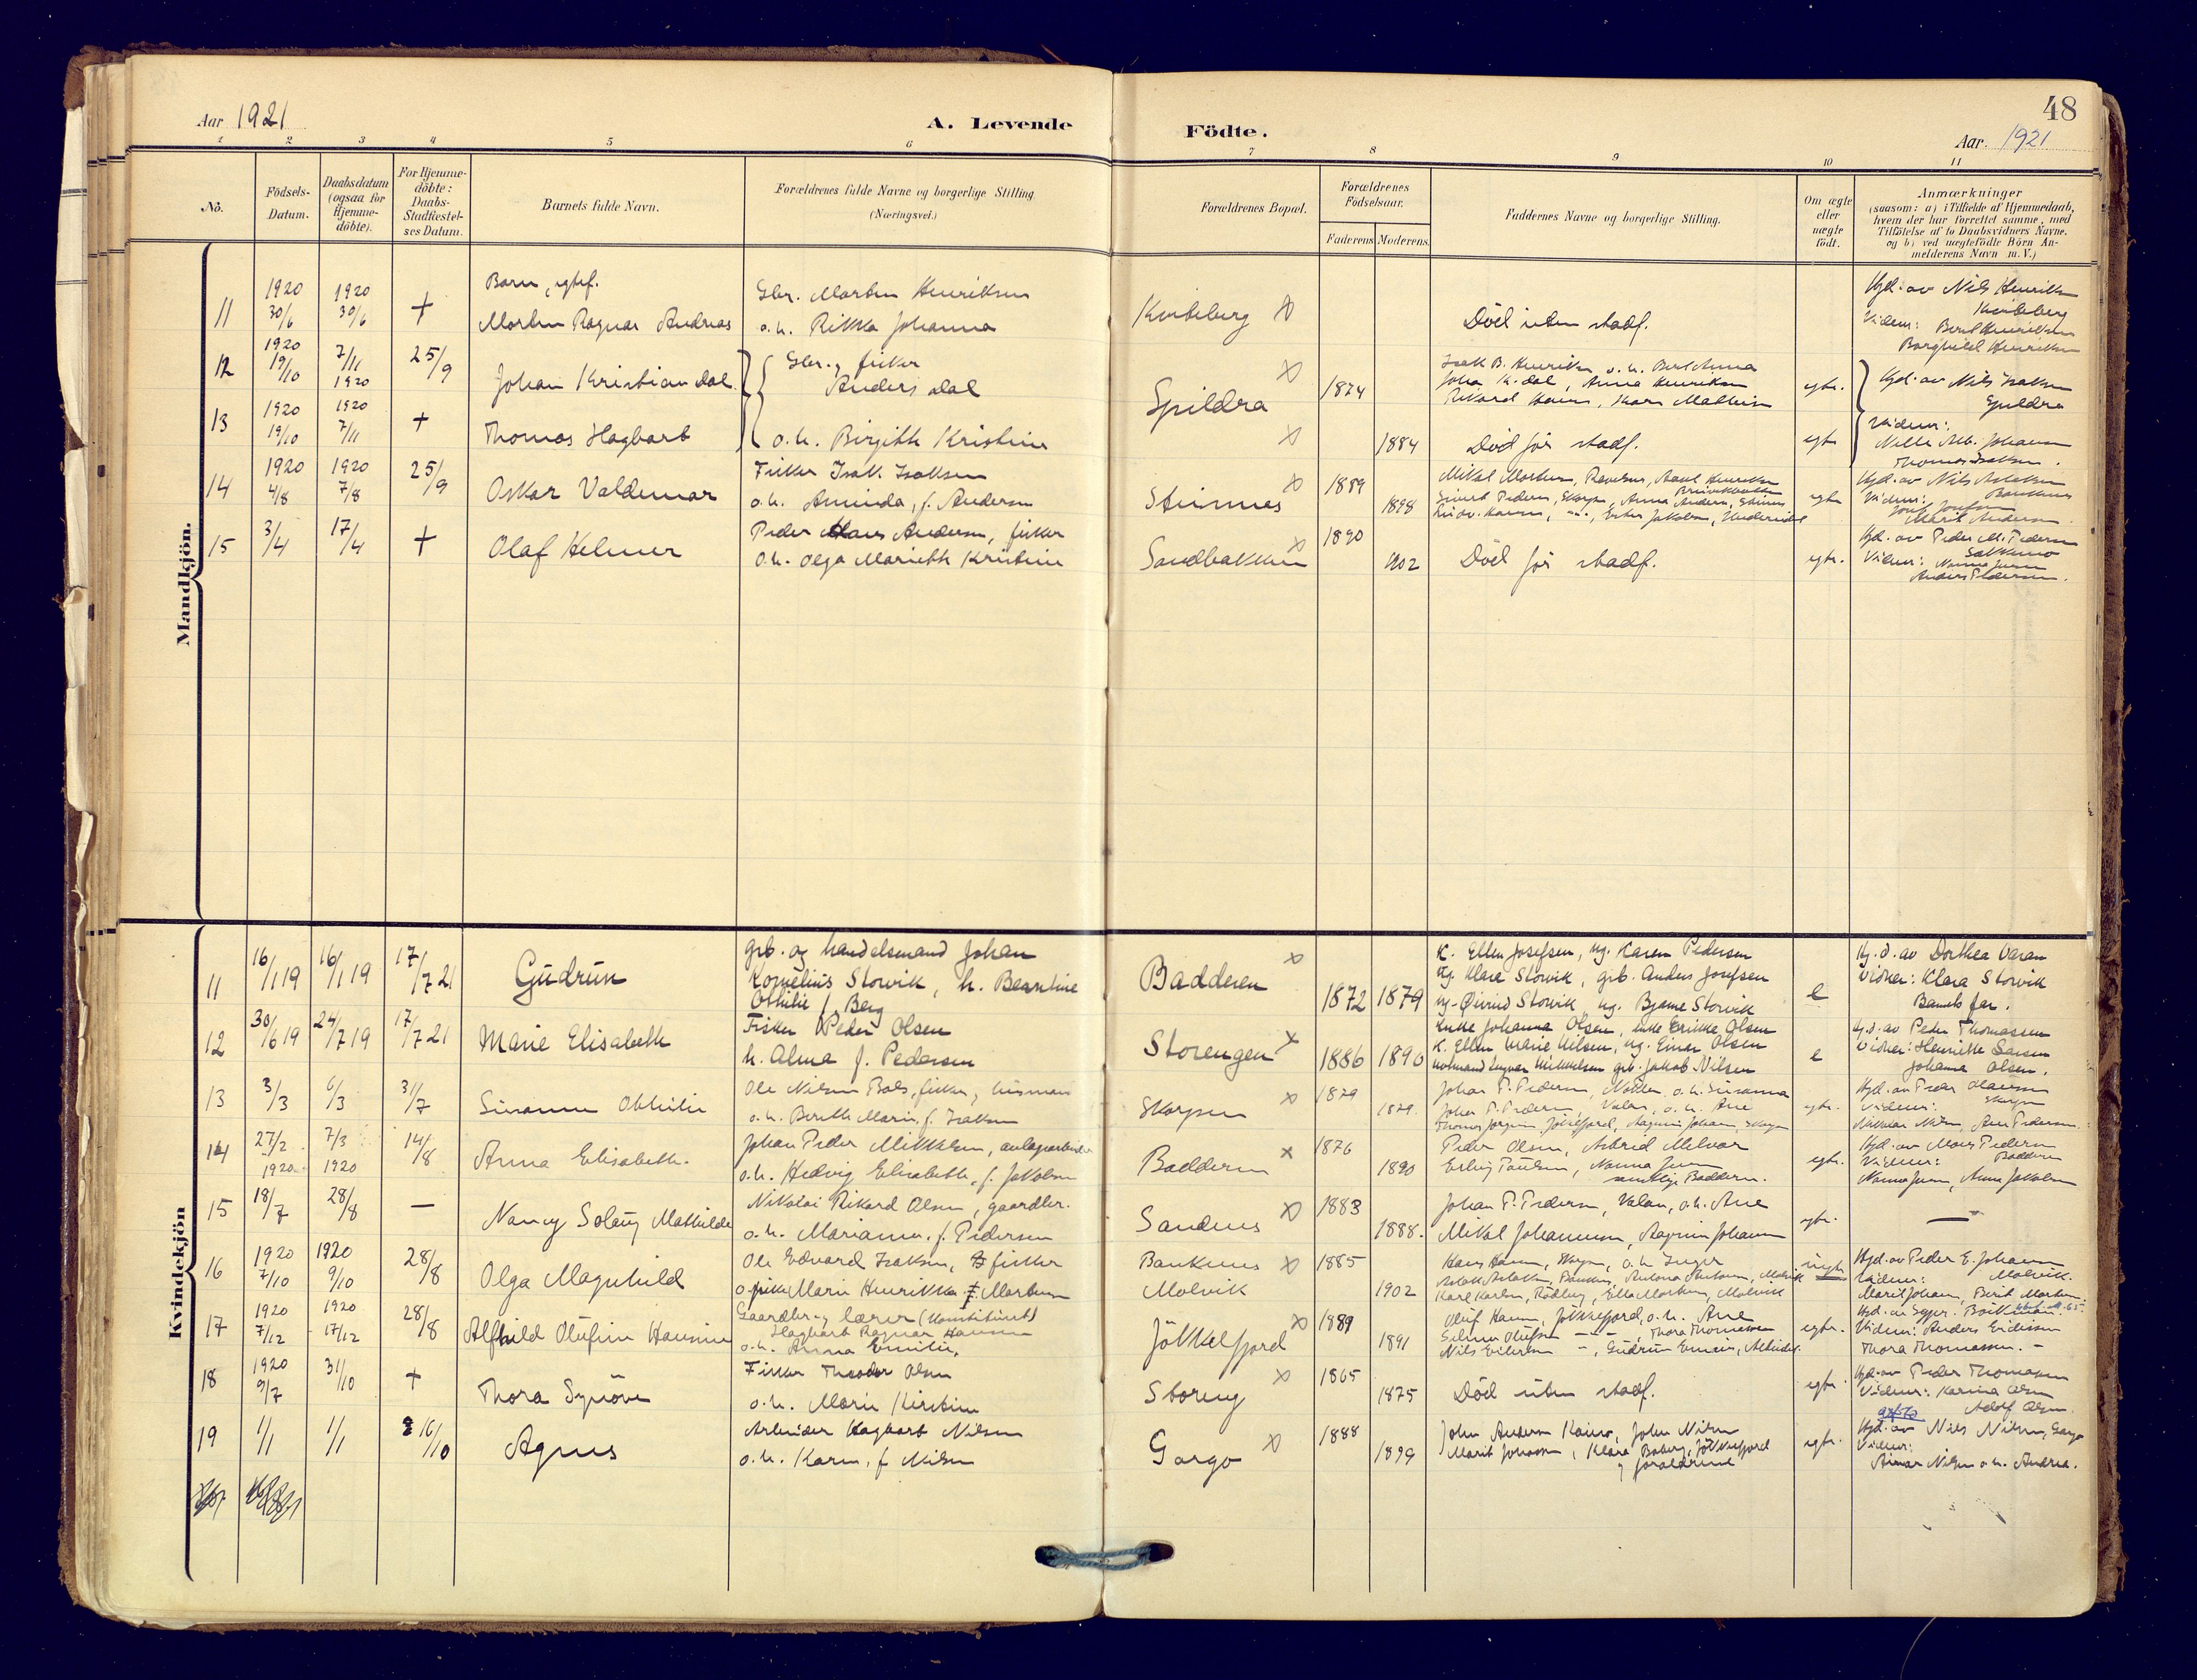 48
Aar 1921
A. Levende
Födte.
Aar. 1921
1 2 3 4 5 6 7 8 9 10 11
No.
Födsels-
Datum.
Daabsdatum
(ogsaa for
Hjemme-
döbte).
For Hjemme-
döbte:
Daabs-
Stadfæstel-
ses Datum.
Barnets fulde Navn.
Forældrenes fulde Navne og borgerlige Stilling
(Næringsvei.)
Forældrenes Bopæl.
Forældrenes
Födselsaar.
Faderens Moderens
Faddernes Navne og borgerlige Stilling.
Om ægte
eller
uægte
födt.
Anmærkninger
(saasom: a) i Tilfælde af Hjemmedaab,
hvem der har forrettet samme, med
Tilföielse af to Daabsvidners Navne.
og b) ved uægtefödte Börn An-
melderens Navn m. V.)
Mandkjön.
11
1920
30/6
1920
30/6
+
Barn, egtef.
Morten Ragnar Andreas
Gbr. Morten Henriksen
o. h. Rikka Johanna
Kviteberg
Död uten stadf.
Hjd. av Nils Henriksen
Kviteberg
Vidner: Berit Henriksen
Borghild Henriksen
12
1920
19/10
7/11
1920
25/9
Johan Kristian Dal
Gbr. og fisker
Anders Dal
Spildra
1874
Isak B. Henriksen o. h. Berit Anna
Johan K. Dal, Anna Henriksen
Rikard Hansen, Karen Mathisen
egte.
Hjd. av Nils Isaksen
Spildra
13
1920
19/10
1920
7/11
+
Thomas Hagbart
o. h. Birgitte Kristine
1884
Död för stadf.
egte
Vidner:
Thomas Isaksen.
14
1920
4/8
1920
7/8
25/9
Oskar Valdemar
Fisker Isak Isaksen
o. h. Aminda, f. Andersen
Steinnes
1889
1898
egte
Hjd. av Nils Aslaksen
Vidner:
Josef Josefsen
Marit Andersen
15
3/4
17/4
+
Olaf Helmer
Peder Hans Andersen, fisker
o. h. Olga Mariette Kristine
Sandbakken
1890
1902
Död för stadf.
egte.
Hjd. av Peder M. Pedersen
Vidner: Nanna Jensen
Anders Pedersen.
Kvindekjön
11
16/1 19
16/1 19
17/7 21
Gudrun
grb. og handelsmand Johan
Kornelius Storvik, h. Berntine
Othilie f. Berg
Badderen
1872 1879
K. Ellen Josefsen, ug. Karen Pedersen
ug. Klara Storvik, grb. Anders Josefsen
ug. Øivind Storvik, ug. Bjarne Storvik
e
Hj. d. av Dorthea Varan
Vidner: Klara Storvik
Barnets far.
12
30/6 19
24/7 19
17/7 21
Marie Elisabeth
Fisker Peder Olsen
h. Alma f. Pedersen
Storengen
1886 1890
Enke Johanna Olsen, enke Erikke Olsen
K. Ellen Marie Nilsen, ug. Einar Olsen
grb. Jakob Nilsen
e
Hj. d. av Peder Thomassen
Vidner: Henriette Larsen
Johanna Olsen.
13
3/3
6/3
31/7
Susanne Othilie
Ole Nilsen Bals, fisker, husmann
o. h. Berith Marie, f. Isaksen
Skorpen
1879
1879.
egte.
Hjd. av Peder Olaussen
Skorpen
Vidner:
14
27/2
1920
7/3
1920
14/8
Anna Elisabeth.
Johan Peder Mikkelsen, anlægsarbeider
o. h. Hedvig Elisabeth, f. Jakobsen
Badderen
1876
1890
Peder Olsen, Astrid Melvær
Erling Paulsen, Nanna Jensen
samtlige Badderen.
egte.
Hjd. av Mons Pedersen
Vidner: Badderen
Nanna Jensen, Anna Jakobsen
15
18/7
28/8
—
Nancy Solaug Mathilde
Nikolai Rikard Olsen, gaardbr.
o. h. Marianne, f. Pedersen
Sandnes
1883
1888.
Johan P. Pedersen, Valan, o. h. Ane
Mikal Johannesen, Ragnus Johansen
egte.
—
16
1920
7/10
1920
9/10
28/8
Olga Magnhild
Ole Edvard Isaksen, fisker
o. pike Marie Henrikka Mortensen
Bankenes
Molvik
1885
1902
Hans Hansen, Skorpen, o. h. Inger
Karl Karlsen, Rödberg, Ella Mortensen, Molvik
uegte
Hjd. av Peder E. Johansen
Vidner: Molvik.
Marit Johansen, Berit Mortensen.
17
1920
7/12
1920
17/12
28/8
Alfhild Olufine Hansine
Gaardbr. og lærer (konstitueret)
Hagbart Ragnar Hansen
o. h. Anna Emilie,
Jökkelfjord
1889
1891
Oluf Hansen, Jökkelfjord, o. h. Ane
egte.
Vidner: Anders Eriksen
Thora Thomassen. -
18
1920
9/7
31/10
+
Thora Synöve
Fisker Theodor Olsen
o. h. Marie Kirstine
Storeng
1865
1875
Död uten stadf.
egte.
Hjd. av Peder Thomassen
Vidner: Karina Olsen
Adolf Olsen.
19
1/1
1/1
16/10
Agnes
Arbeider Hagbart Nilsen
o. h. Karen, f. Nilsen
Gargo
1888
1899
John Andersen Kaino, John Nilsen
Marit Johansen, Klara Boberg, Jökkelfjord
og forældrene
egte.
Hjd. av Nils Nilsen, Gargo
Vidner:
Aimar Nilsen o. h. Andrea.